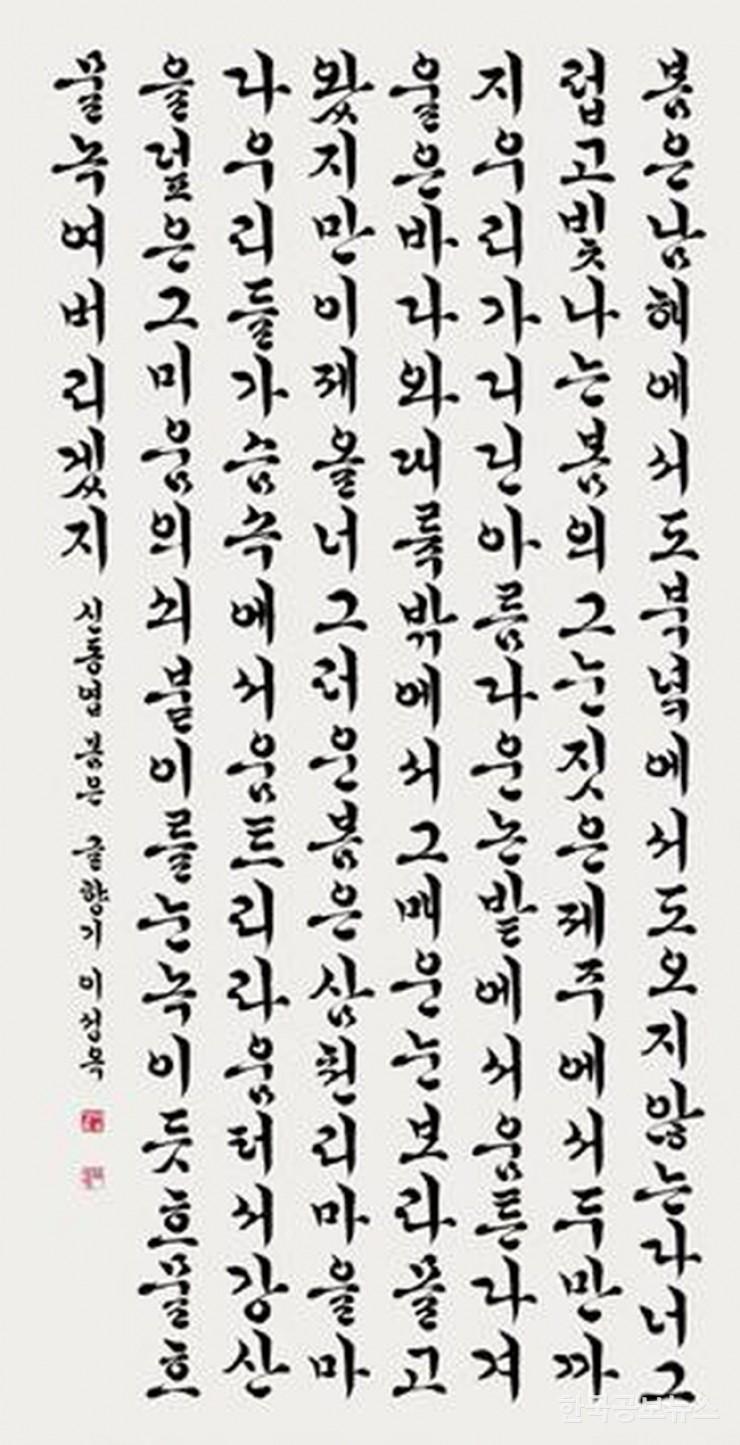 봄은남해에서도북녘에서도오지않는다너그
럽고빛나는봄의그눈짓은제주에서두만까
지우리가디딘아름다운논밭에서움튼다겨
울은바다와대륙밖에서그매운눈보라몰고
왔지만이제올너그러운봄은삼천리마을마
다우리들가슴속에서움트리라움터서강산
을덮은그미움의쇠붙이를눈녹이듯흐물흐
물녹여버리겠지 신동엽 봄은 글향기 이성옥
한국공보뉴스